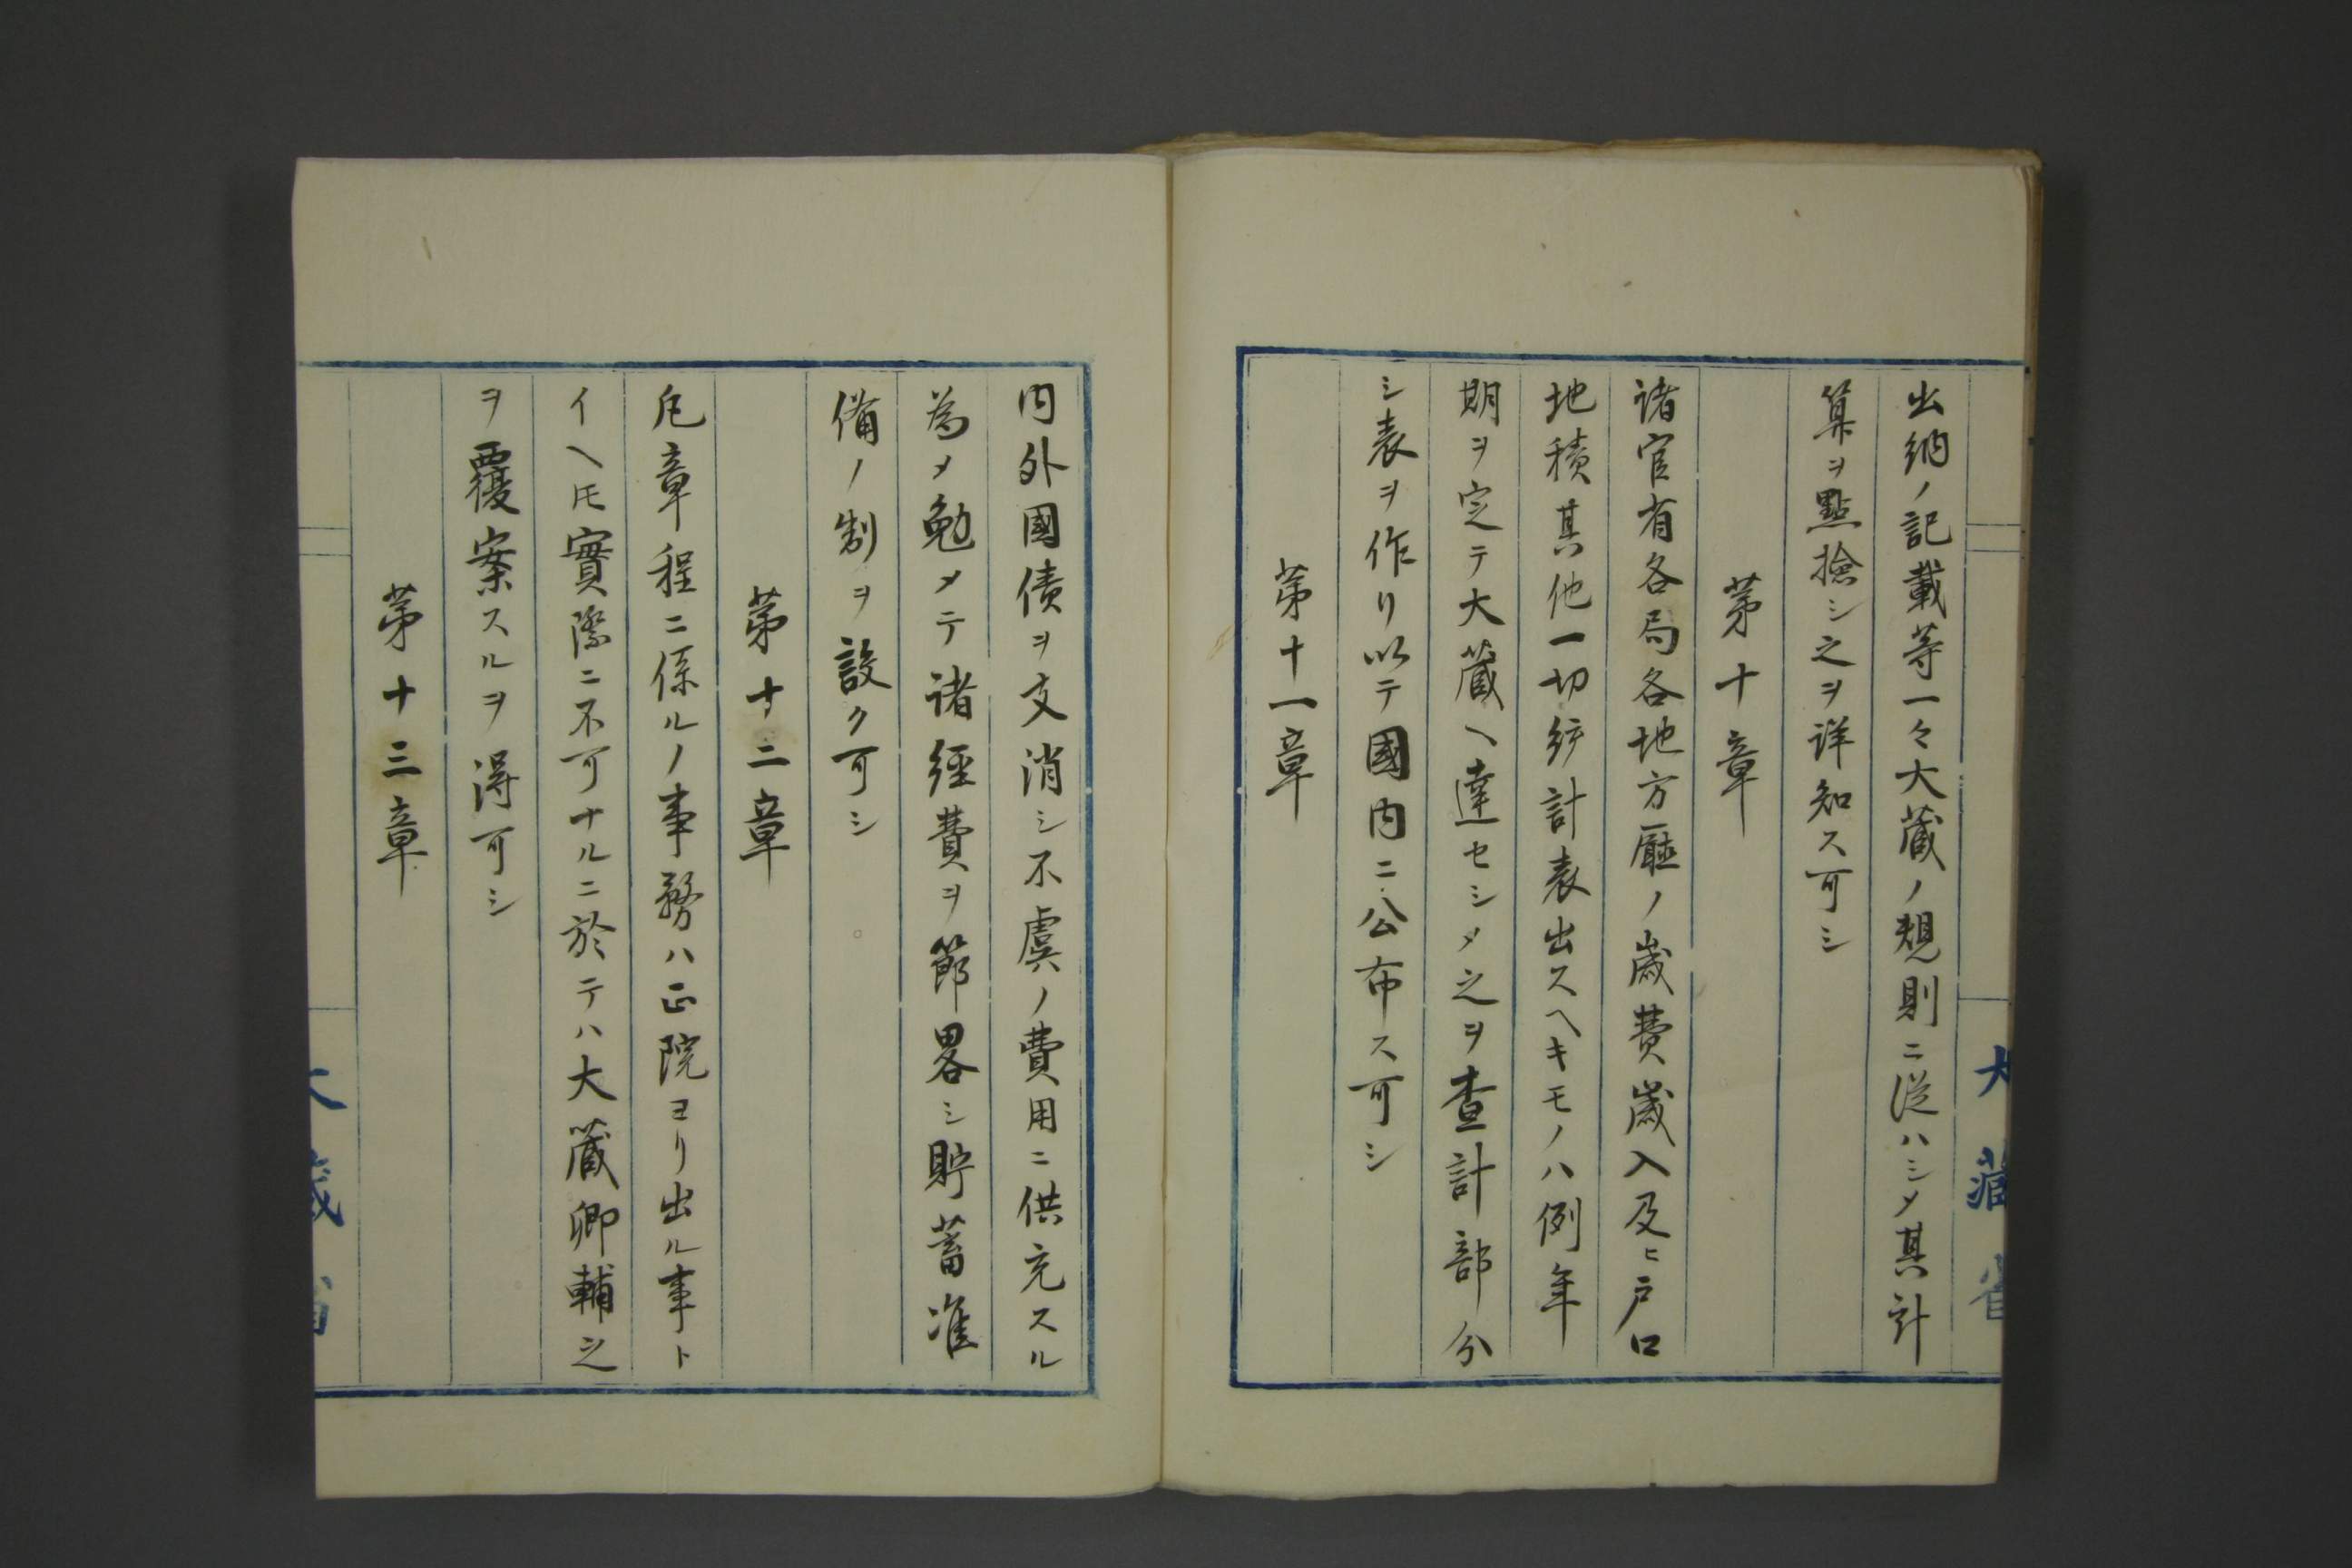 出納ノ記載等一々大蔵ノ規則ニ従ハシメ其計
算ヲ點撿シ之ヲ詳知ス可シ
第十章
諸官省各局各地方廳ノ歳費歳入及ヒ戸口
地積其他一切統計表出スヘキモノハ例年
期ヲ定テ大蔵ヘ達セシメ之ヲ査計部分
シ表ヲ作リ以テ國内ニ公布ス可シ
第十一章
内外國債ヲ支消シ不虞ノ費用ニ供充スル
為メ勉メテ諸經費ヲ節畧シ貯蓄准
備ノ制ヲ設ク可シ
第十二章
凡章程ニ係ルノ事務ハ正院ヨリ出ル事ト
イヘ𪜈實際ニ不可ナルニ於テハ大蔵卿輔之
ヲ覆案スルヲ得可シ
第十三章
大藏省
大藏省